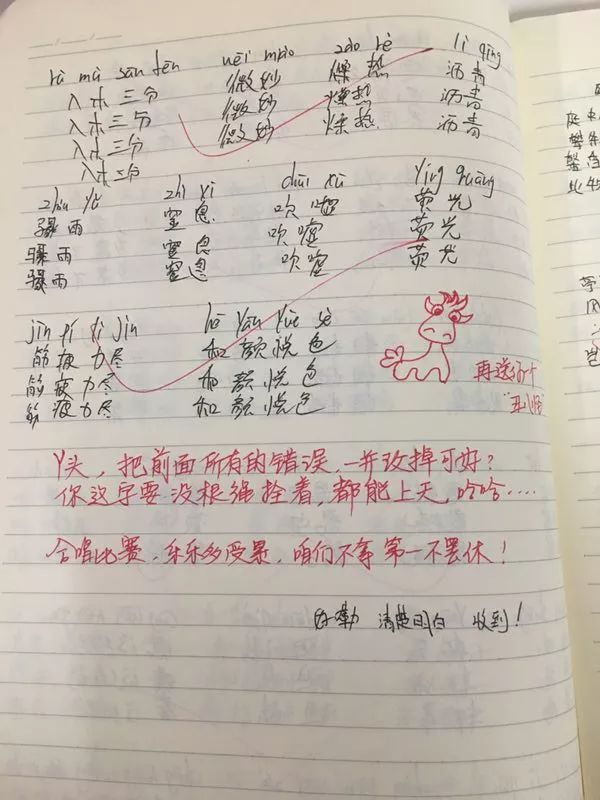 rù mù sān fēn wēi miào zào rè lì qīng
入木三分 微妙 燥热 沥青
入木三分 微妙 燥热 沥青
入木三分 微妙 燥热 沥青
入木三分
zhòu yǔ zhì xī chuī xū yíng guāng
骤雨 窒息 吹嘘 荧光
骤雨 窒息 吹嘘 荧光
骤雨 窒息 吹嘘 荧光
jīn pí lì jìn hé yán yuè sè
筋疲力尽 和颜悦色
筋疲力尽 和颜悦色
筋疲力尽 和颜悦色
再送你个
丫头，把前面所有的错误，一并改掉可好？
你这字要没根绳拴着，都能上天，哈哈……
合唱比赛，乐乐多受累，咱们不拿第一不罢休！
好嘞 清楚明白 收到！